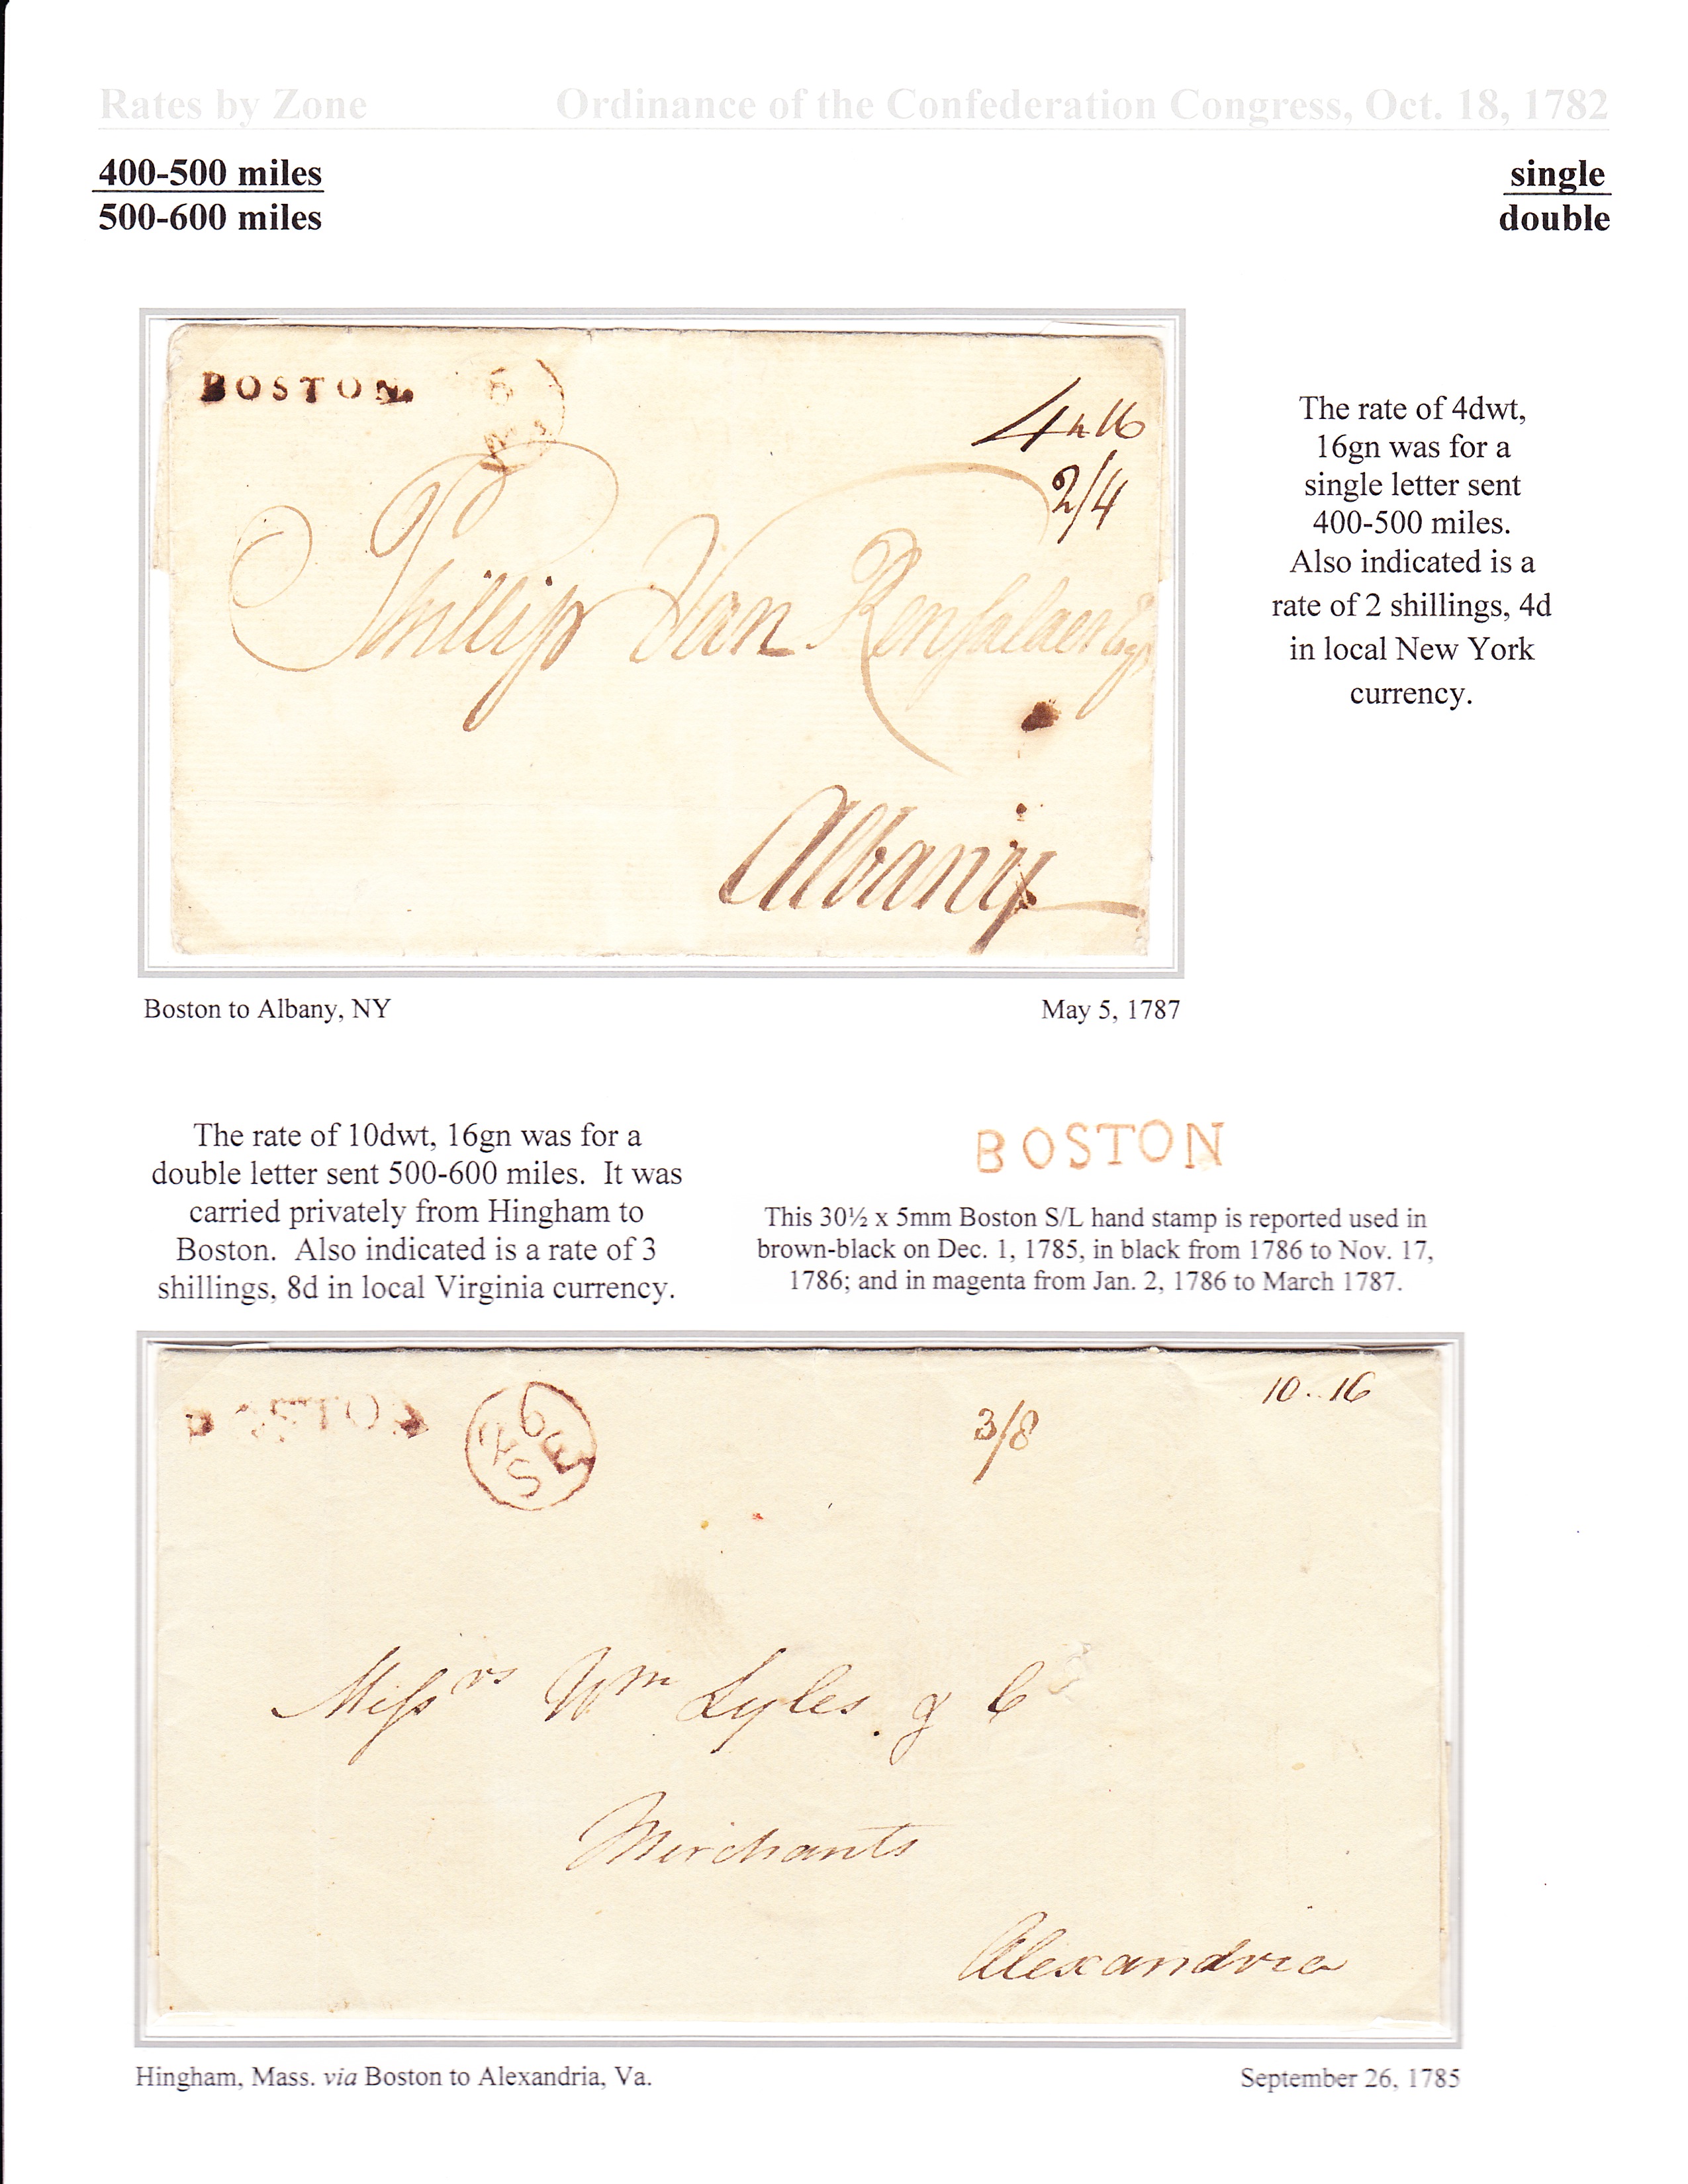 Rates by Zone Ordinance of the Confederation Congress, Oct. 18, 1782
400-500 miles single
500-600 miles double
BOSTON.
5
4 16
2/4
Phillip Van Renssalaer Esqr
Albany
The rate of 4dwt,
16gn was for a
single letter sent
400-500 miles.
Also indicated is a
rate of 2 shillings, 4d
in local New York
currency.
Boston to Albany, NY May 5, 1787
The rate of 10dwt, 16gn was for a
double letter sent 500-600 miles. It was
carried privately from Hingham to
Boston. Also indicated is a rate of 3
shillings, 8d in local Virginia currency.
BOSTON
This 30½ x 5mm Boston S/L hand stamp is reported used in
brown-black on Dec. 1, 1785, in black from 1786 to Nov. 17,
1786; and in magenta from Jan. 2, 1786 to March 1787.
BOSTON
SE
10..16
3/8
Messrs Wm Lyles & Co
Merchants
Alexandria
Hingham, Mass. via Boston to Alexandria, Va. September 26, 1785